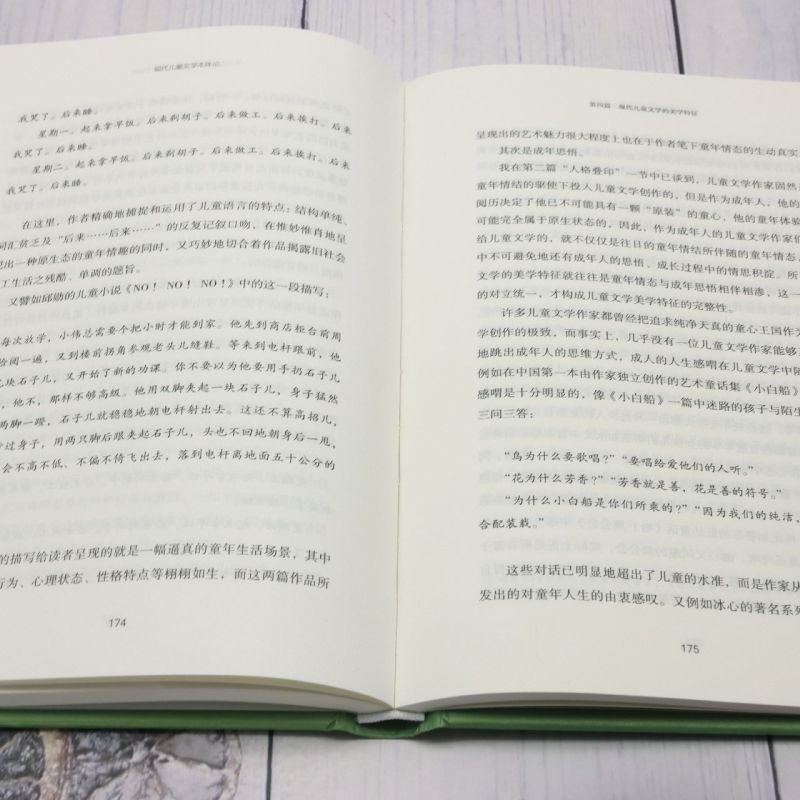 现代儿童文学本体论
我哭了。后来睡。
星期一。起来拿早饭。后来刹胡子。后来做工。后来挨打。后来
我哭了。后来睡。
星期二。起来拿早饭。后来刹胡子。后来做工。后来挨打。后来
我哭了。后来睡。
在这里，作者精确地捕捉和运用了儿童语言的特点：结构单纯、
词汇贫乏及“后来……后来……”的反复记叙口吻，在惟妙惟肖地呈
现出一种原生态的童年情趣的同时，又巧妙地切合着作品揭露旧社会
工生活之残酷、单调的题旨。
又譬如邱勋的儿童小说《NO！NO！NO！》中的这一段描写：
每次放学，小伟总需要个把小时才能到家。他先到商店柜台前周
阅一遍，又到楼前拐角参观老头儿缝鞋。等来到电杆跟前，他
块石子儿，又开始了新的功课。你不要以为他要用手扔石子儿
，他不，那样不够高级。他用双脚夹起一块石子儿，身子猛然
两脚一蹬，石子儿就稳稳地朝电杆射出去。这还不算高招儿，
过身子，用两只脚后跟夹起石子儿，头也不回地朝身后一甩，
会不高不低、不偏不倚飞出去，落到电杆离地面五十公分的
的描写给读者呈现的就是一幅逼真的童年生活场景，其中
行为、心理状态、性格特点等栩栩如生，而这两篇作品所
174
第四篇 现代儿童文学的美学特征
呈现出的艺术魅力很大程度上也在于作者笔下童年情态的生动真实
其次是成年思悟。
我在第二篇“人格叠印”一节中已谈到，儿童文学作家固然是
童年情结的驱使下投入儿童文学创作的，但是作为成年人，他的
阅历决定了他已不可能具有一颗“原装”的童心，他的童年体验
可能完全属于原生状态的，因此，作为成年人的儿童文学作家
给儿童文学的，就不仅仅是往日的童年情结所伴随的童年情态，
中不可避免地还有成年人的思悟、成长过程中的情思积淀。所
文学的美学特征就往往是童年情态与成年思悟相伴相渗，这一
的对立统一，才构成儿童文学美学特征的完整性。
许多儿童文学作家都曾经把追求纯净天真的童心王国作为
学创作的极致，而事实上，几乎没有一位儿童文学作家能够
地跳出成年人的思维方式，成人的人生感喟在儿童文学中随
例如在中国第一本由作家独立创作的艺术童话集《小白船》
感喟是十分明显的，像《小白船》一篇中迷路的孩子与陌生
三问三答：
“鸟为什么要歌唱？”“要唱给爱他们的人听。”
“花为什么芳香？”“芳香就是善，花是善的符号。”
“为什么小白船是你们所乘的？”“因为我们的纯洁，
合配装载。”
这些对话已明显地超出了儿童的水准，而是作家从
发出的对童年人生的由衷感叹。又例如冰心的著名系列
175